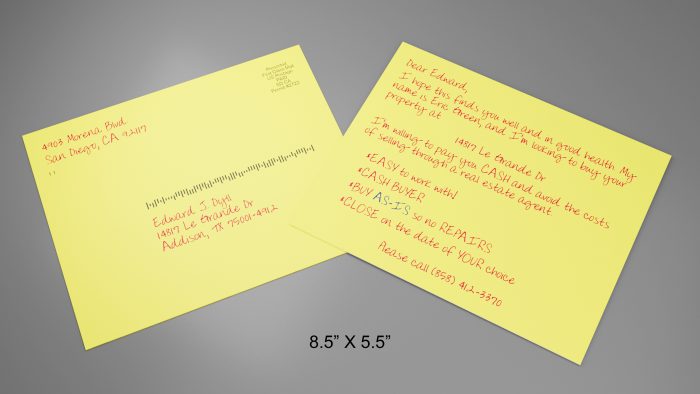 4903 Morena Blvd.
San Diego, CA 92117
Presorted
First Class Mail
US Postage
PAID
Edward J. Dyjil
14817 Le Grande Dr
Addison, TX 75001-4912
Dear Edward,
I hope this finds you well and in good health. My
name is Eric Green, and I'm looking to buy your
property at
14817 Le Grande Dr
I'm willing to pay you CASH and avoid the costs
of selling through a real estate agent
*EASY to work with!
*CASH BUYER
*BUY AS-IS so no REPAIRS
*CLOSE on the date of YOUR choice
Please call (858) 412-3370
8.5” X 5.5”